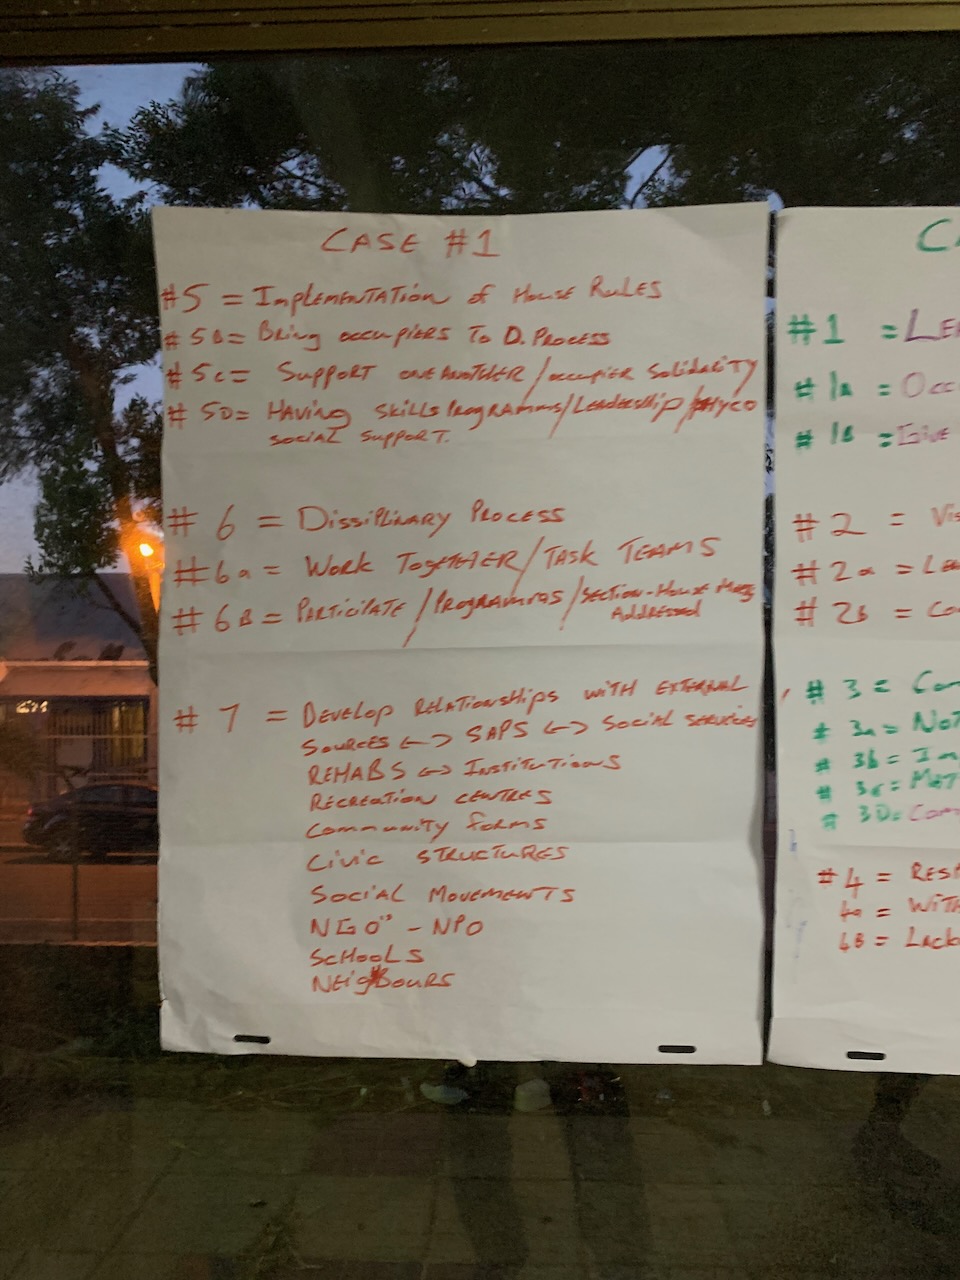 CASE #1
#5 = Implementation of House Rules
# 5B= Bring occupiers To D. Process
# 5c= Support one Another/occupier Solidarity
# 5D= Having Skills Programms/Leadership/Phyco
social support.
# 6 = Dissiplinary Process
#6a = Work Together/Task Teams
# 6B = Participate/Programms/Section-House
Addressed
# 7 = Develop Relationships with external
Sources <-> SAPS <-> Social services
REHABS <-> Institutions
Recreation centres
Community forms
Civic structures
Social Movements
NGO" - NPO
Schools
Neighbours
#1 =
# 1a =
# 1B = Give
# 2 =
# 2a =
# 2b =
# 3 =
# 3a = Not
# 3b =
# 3c =
# 3D=
#4 =
4a = With
4B =